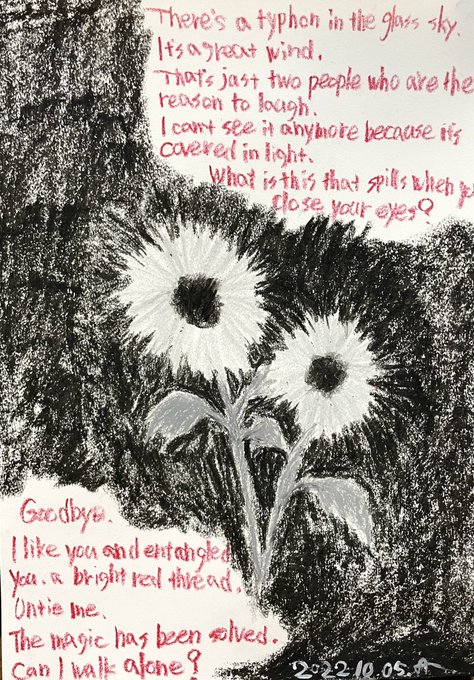 There's a typhon in the glass sky.
It's a great wind.
That's just two people who are the
reason to laugh.
I can't see it anymore because it's
covered in light.
What is this that spills when yo
close your eyes?
Goodbye.
I like you and entangled
you. a bright red thread.
Untie me.
The magic has been solved.
Can I walk alone?
2022.10.05.A